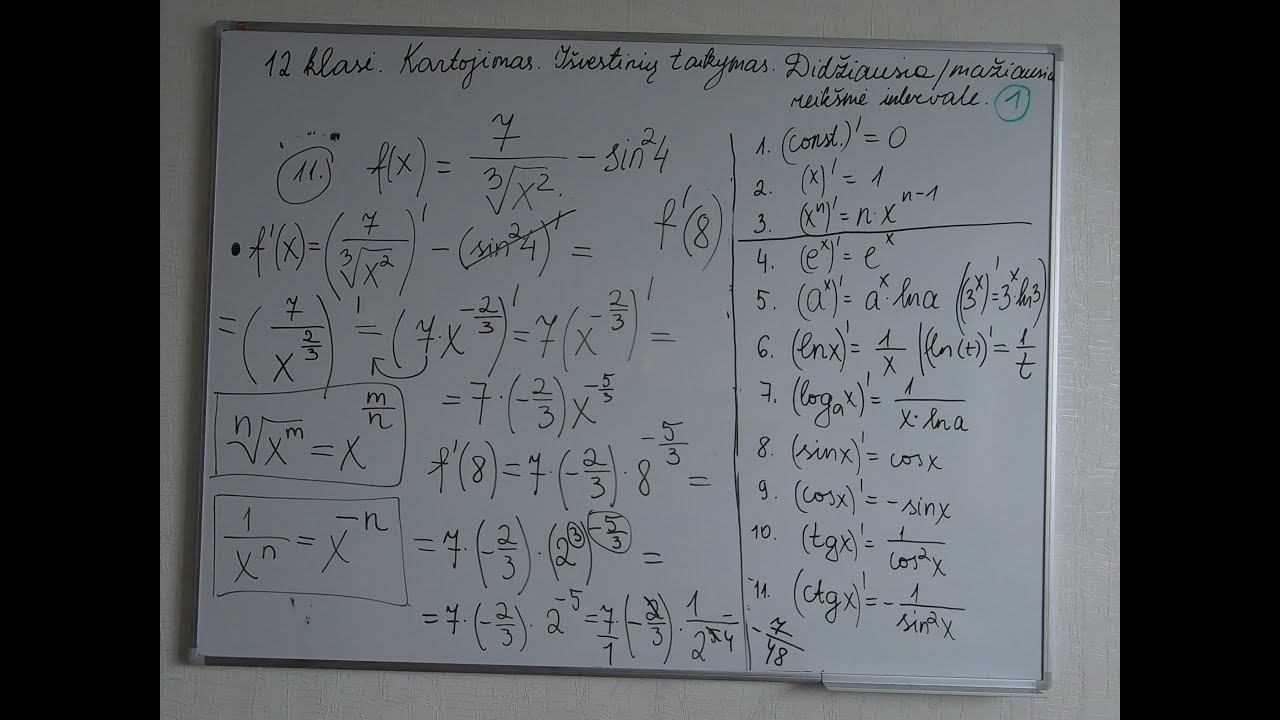 12 klasė. Kartojimas. Išvestinių taikymas. Didžiausia/mažiausia
reikšmė intervale. 1
11. f(x) = 7/∛(x²) - sin²4
f'(8)
• f'(x) = (7/∛(x²))' - (sin²4)' =
= (7/x^(2/3))' = (7·x^(-2/3))' = 7(x^(-2/3))' =
= 7·(-2/3)x^(-5/3)
ⁿ√(x^m) = x^(m/n)
f'(8) = 7·(-2/3)·8^(-5/3) =
1/x^n = x^(-n)
= 7·(-2/3)·(2^3)^(-5/3) =
= 7·(-2/3)·2^(-5) = 7/1·(-2/3)·1/2^5 4 = -7/48
1. (const.)' = 0
2. (x)' = 1
3. (x^n)' = n·x^(n-1)
4. (e^x)' = e^x
5. (a^x)' = a^x·ln a ((3^x)' = 3^x ln3)
6. (lnx)' = 1/x | (ln(t))' = 1/t
7. (logₐx)' = 1/(x·ln a)
8. (sinx)' = cosx
9. (cosx)' = -sinx
10. (tgx)' = 1/cos²x
11. (ctgx)' = -1/sin²x